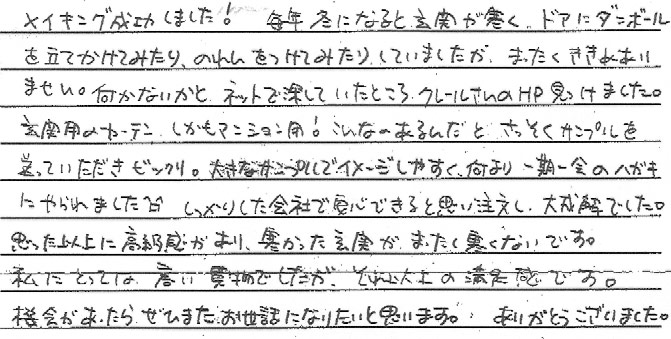 メイキング成功しました! 毎年冬になると玄関が寒く、ドアにダンボール
を立てかけてみたり、のれんをつけてみたり、していましたが、まったくききめあり
ません。何かないかと、ネットで探していたところ、クレールさんのHP見つけました。
玄関用のカーテン、しかもマンション用!こんなのあるんだと さっそくサンプルを
送っていただきビックリ。大きなサンプルでイメージしやすく、何より一期一会のハガキ
にやられました しっかりした会社で安心できると思い注文し、大成解でした。
思った以上に高級感があり、寒かった玄関が、まったく寒くないです。
私にとっては 高い買物でしたが、それ以上の満足感です。
機会があったら、ぜひまたお世話になりたいと思います。 ありがとうございました。